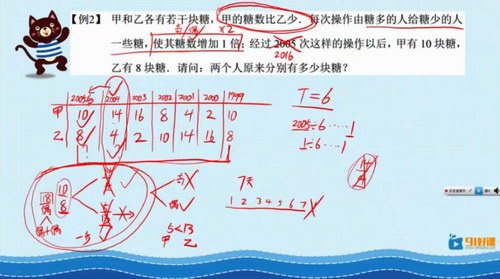 【例2】 甲和乙各有若干块糖,甲的糖数比乙少.每次操作由糖多的人给糖少的人
一些糖,使其糖数增加1倍;经过2005次这样的操作以后,甲有10块糖,
×2
2016
乙有8块糖.请问:两个人原来分别有多少块糖?
2005 2004 2003 2002 2001 2000 1999
甲 10 14 16 8 4 2 10
乙 8 4 2 10 14 16 8
T=6
2005÷6……1
1÷6……1
18 10
8
偶
偶+偶
一步
5<13
甲 乙
7天
1 2 3 4 5 6 7
14
4